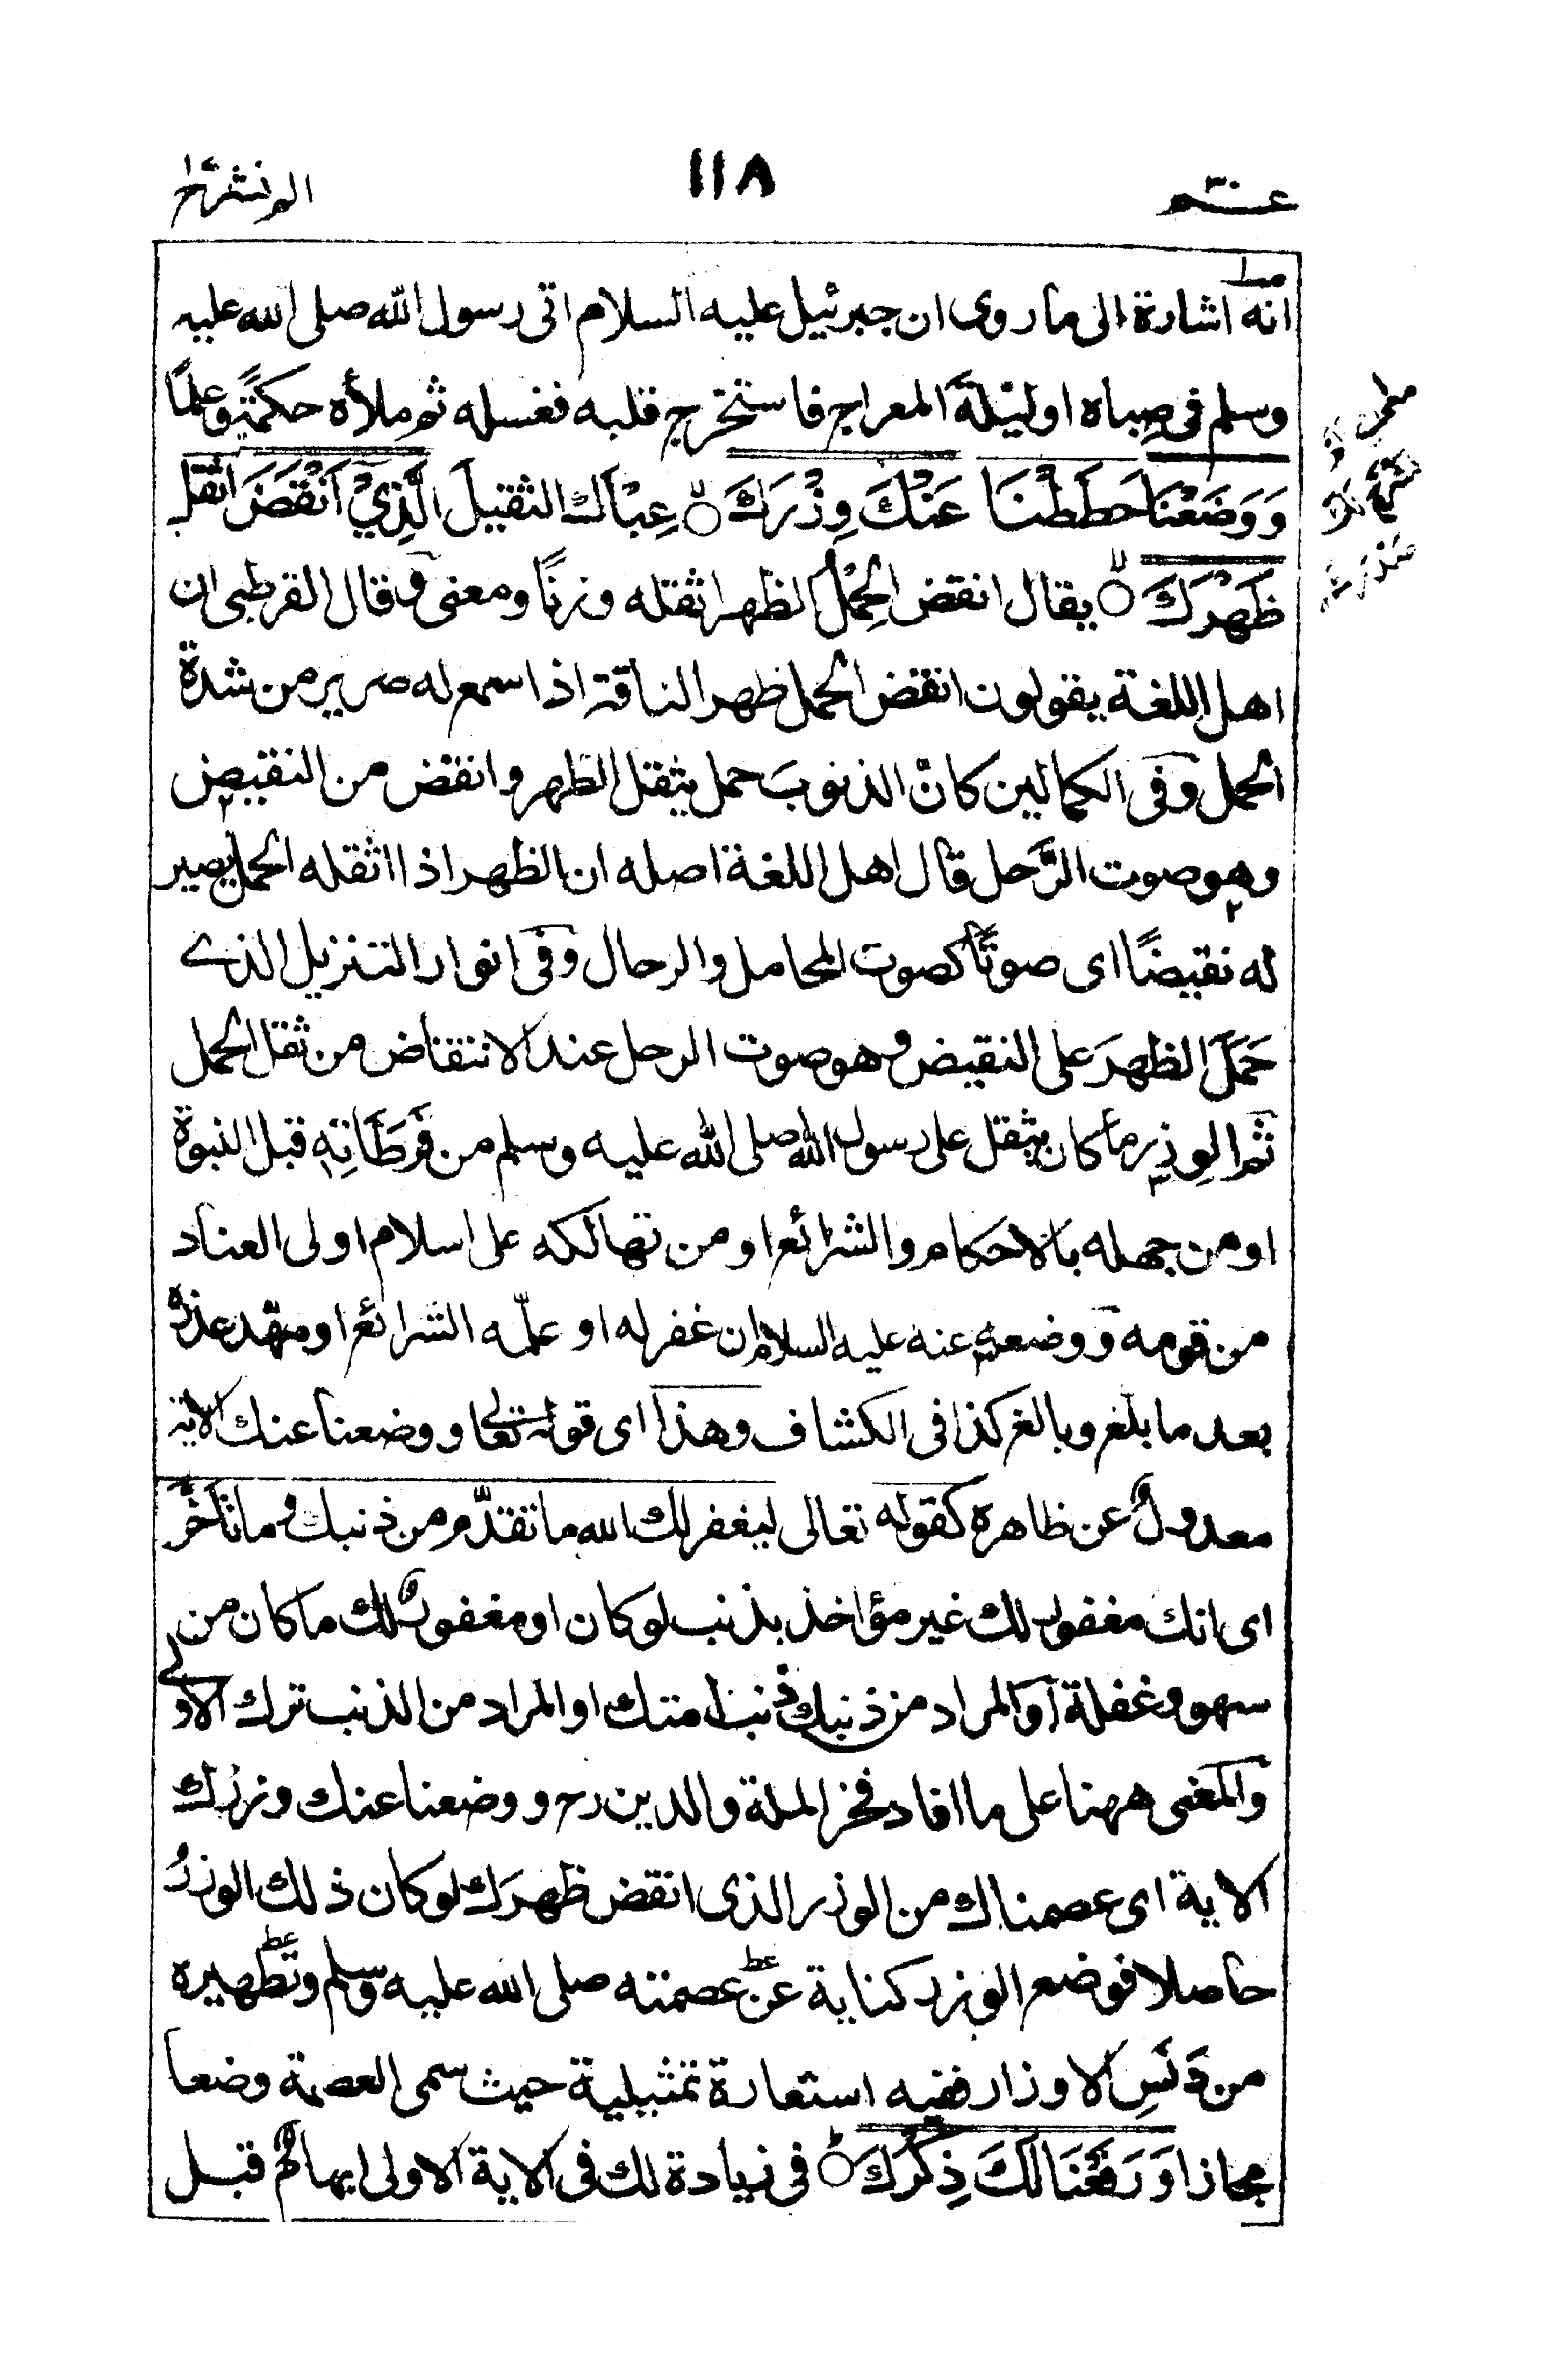 عــم ١١٨ الم نشرح
انه اشارة الى ما روى ان جبرئيل عليه السلام اتى رسول الله صلى الله عليه
وسلم فى صباه او ليلة المعراج فاستخرج قلبه فغسله ثم ملأه حكمةً وعلمًا
وَوَضَعْنَا حَطَطْنَا عَنْكَ وِزْرَكَ عِبْأك الثقيل الَّذِيْٓ اَنْقَضَ اثقل
ظَهْرَكَ يقال انقض الحِمْلُ الظهر اثقله وزنًا ومعنى وقال القرطبى ان
اهل اللغة يقولون انقض الحمل ظهر الناقة اذا سمع له صرير من شدة
الحمل وفى الكمالين كانّ الذنوبَ حمل يثقل الظهر وانقض من النقيض
وهو صوت الرَّحل قال اهل اللغة اصله ان الظهر اذا اثقله الحمل يصير
له نقيضًا اى صوتًا كصوت المحامل والرحال وفى انوار التنزيل الذى
حَمَلَ الظهرَ على النقيض وهو صوت الرحل عند الانتقاض من ثقل الحمل
ثم الوِزر ما كان يثقل على رسول الله صلى الله عليه وسلم من فَرَطَاتِهٖ قبل النبوة
او من جهله بالاحكام والشرائع او من تهالكه على اسلام اولى العناد
من قومه ووضعه عنه عليه السلام ان غفر له او علّمه الشرائع او مهّد عذره
بعد ما بلغ وبالغ كذا فى الكشاف وهذا اى قوله تعالى ووضعنا عنك الاية
معدولٌ عن ظاهره كقوله تعالى ليغفر لك الله ما تقدّم من ذنبك وما تاَخَّرَ
اى انك مغفور لك غير مؤاخذ بذنب لو كان او مغفورٌ لك ما كان من
سهو وغفلة او المراد من ذنبك ذنب امتك او المراد من الذنب ترك الاولى
والمعنى ههنا على ما افاد فخر الملة والدين رح ووضعنا عنك وزرك
الاية اى عصمناك من الوزر الذى انقض ظهرَك لو كان ذلك الوزرُ
حاصلا فوضع الوزر كناية عن عصمته صلى الله عليه وسلم وتطهيره
من دَنَسِ الاوزار ففيه استعارة تمثيلية حيث سمى العصمة وضعا
مجازا وَرَفَعْنَا لَكَ ذِكْرَكَ فى زيادة لك فى الاية الاولى ايهامٌ قبل